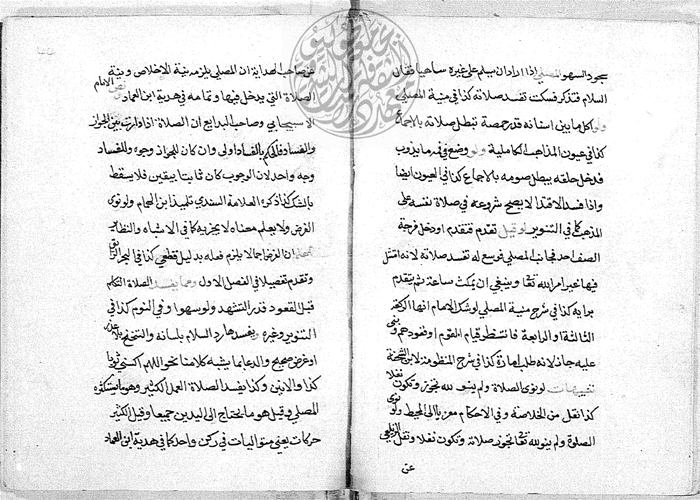 بسجود السهو المصلي إذا أراد ان يسلم على غيره ساهيا فقال
السلام فتذكر فسكت تفسد صلاته كذا في منية المصلي
ولو اكل ما بين اسنانه قدر حمصة تبطل صلاته بالاجماع
كذا في عيون المذاهب الكاملية ولو وضع في فمه ما يذوب
فدخل حلقه يبطل صومه بالاجماع كذا في العيون ايضا
واذا فسد الاقتدا لا يصح شروعه في صلاة نفسه على
المذهب كما في التنوير لو قيل تقدم فتقدم او دخل فرجة
الصف احد فجانب المصلي توسع له تفسد صلاته لانه امتثل
فيها غير امر الله تعا وينبغي ان يمكث ساعة ثم يتقدم
برايه كذا في شرح منية المصلي لو شك الامام انها الركعة
الثالثة او الرابعة فانتظر قيام القوم او قعودهم وبنى
عليه جاز لانه طلب امارة كذا في شرح المنظومة لابن الشحنة
لو نوى الصلاة ولم ينو لله تجوز وتكون نفلا
كذا نقل من الخلاصة وفي الاحكام معزيا الى المحيط ولو نوى
الصلوة ولم ينو لله تعا تجوز صلاته وتكون نفلا ونقل الزيلعي
عن
عن صاحب الهداية ان المصلي يلزمه نية الاخلاص ونية
الصلاة التي يدخل فيها وتمامه في هدية ابن العماد نص الامام
الاسبيجابي وصاحب البدايع ان الصلاة اذا دارت بين الجواز
والفساد فالحكم بالفساد اولى وان كان للجواز وجوه وللفساد
وجه واحد لان الوجوب كان ثابتا بيقين فلا يسقط
بالشك كذا ذكره العلامة السندي تلميذ ابن الهمام ولو نوى
الفرض ولا يعلم معناه لا يجزيه كما في الاشباه والنظائر
ان الفرض ما لا يلزم فعله بدليل قطعي كذا في البحر الرائق
وتقدم تفصيله في الفصل الاول ومما يفسد الصلاة التكلم
قبل القعود قدر التشهد ولو سهوا وفي النوم كذا في
التنوير وغيره ويفسدها رد السلام بلسانه والتنحنح بلا عذر
او غرض صحيح والدعا بما يشبه كلامنا نحو اللهم اكسني ثوبا
كذا والانين وكذا يفسد الصلاة العمل الكثير وهو ما يستكثره
المصلي وقيل هو ما يحتاج الى اليدين جميعا وقيل الكثير
حركات يعني متواليات في ركن واحد كما في هدية ابن العماد